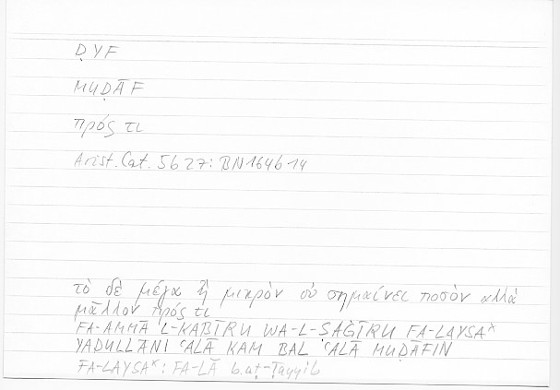 ḌYF
MUḌĀF
πρός τι
Arist. Cat. 5b27: BN164b14
τὸ δὲ μέγα ἢ μικρὸν οὐ σημαίνει ποσὸν ἀλλὰ
μᾶλλον πρός τι
FA-AMMĀ ʾL-KABĪRU WA-L-ṢAĠĪRU FA-LAYSAˣ
YADULLĀNI ʿALĀ KAM BAL ʿALĀ MUḌĀFIN
FA-LAYSAˣ: FA-LĀ b.aṭ-Ṭayyib